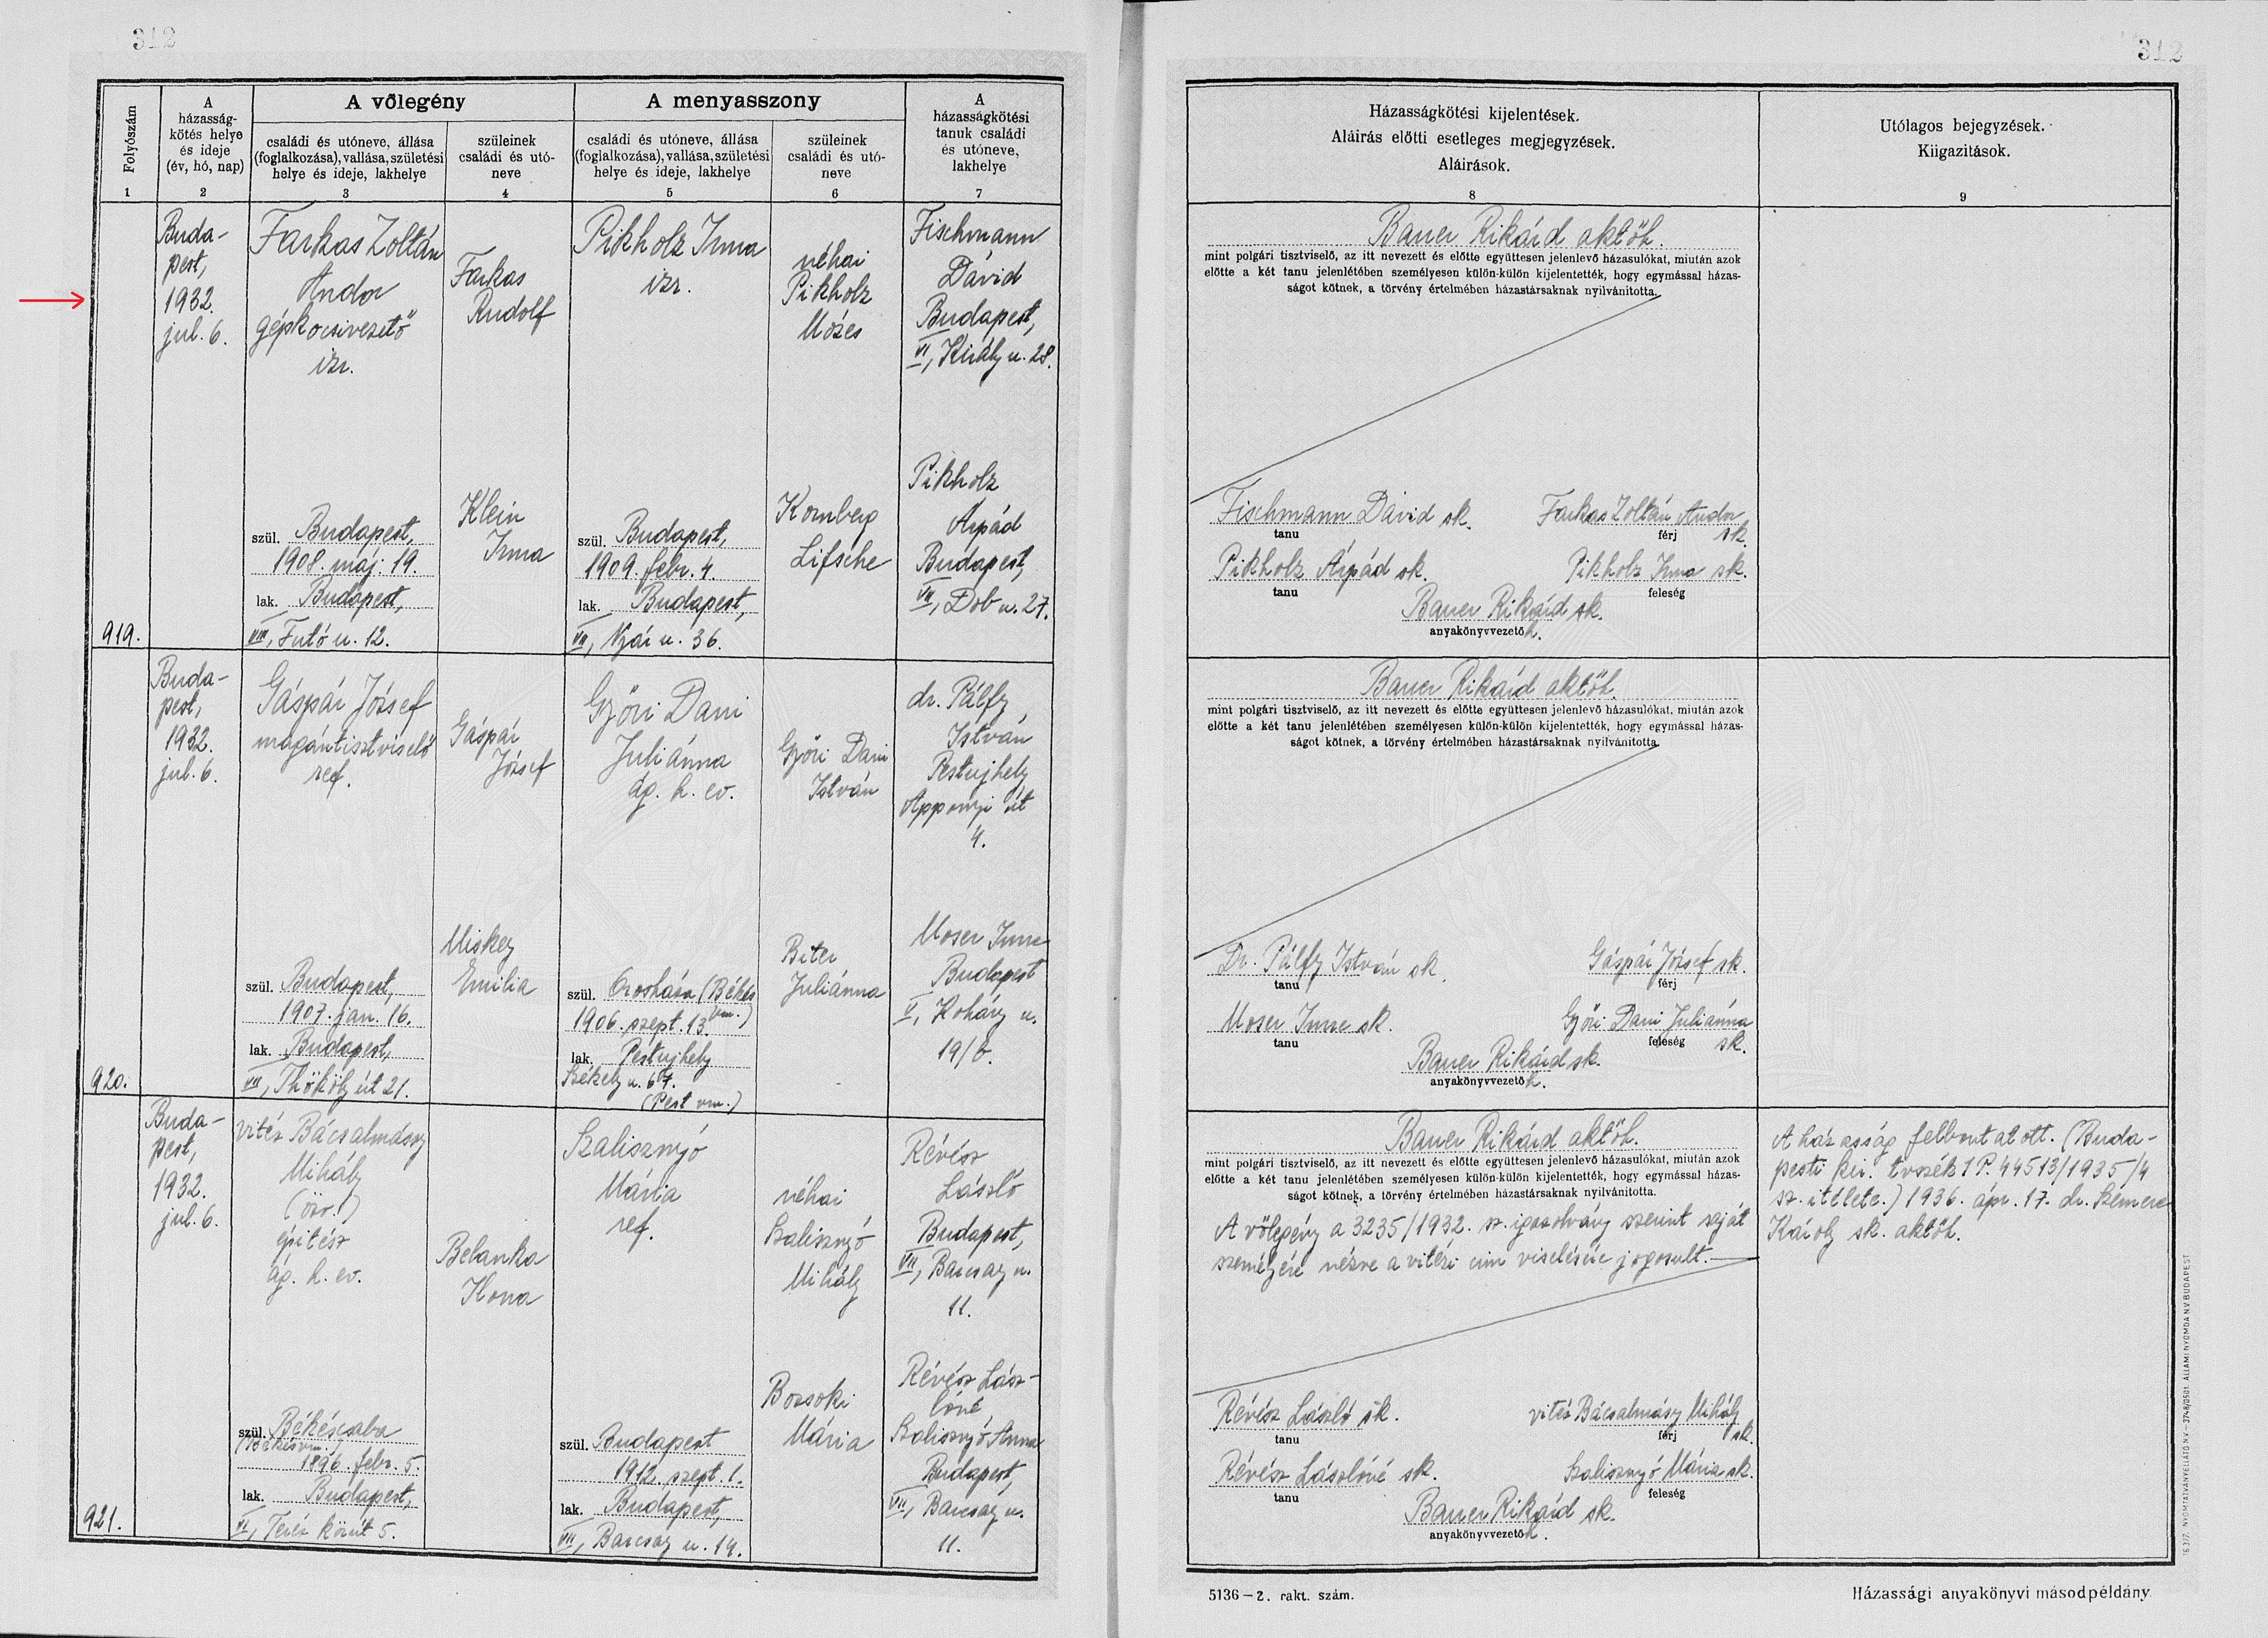 312
312
Folyószám
1
A
házasság-
kötés helye
és ideje
(év, hó, nap)
2
A vőlegény
családi és utóneve, állása
(foglalkozása), vallása, születési
helye és ideje, lakhelye
3
szüleinek
családi és utó-
neve
4
A menyasszony
családi és utóneve, állása
(foglalkozása), vallása, születési
helye és ideje, lakhelye
5
szüleinek
családi és utó-
neve
6
A
házasságkötési
tanuk családi
és utóneve,
lakhelye
7
Házasságkötési kijelentések.
Aláirás előtti esetleges megjegyzések.
Aláirások.
8
Utólagos bejegyzések.
Kiigazitások.
9
919.
Buda-
pest,
1932.
jul. 6.
Farkas Zoltán
Andor
gépkocsivezető
izr.
szül. Budapest,
1908. máj. 19.
lak. Budapest,
VIII, Futó u. 12.
Farkas
Rudolf
Klein
Irma
Pikholz Irma
izr.
szül. Budapest,
1909. febr. 4.
lak. Budapest,
VII, Nyár u. 36.
néhai
Pikholz
Mózes
Kornberg
Lifsche
Fischmann
Dávid
Budapest,
VI, Király u. 28.
Pikholz
Árpád
Budapest,
VII, Dob u. 27.
Bauer Rikárd aktőh.
mint polgári tisztviselő, az itt nevezett és előtte együttesen jelenlevő házasulókat, miután azok
előtte a két tanu jelenlétében személyesen külön-külön kijelentették, hogy egymással házas-
ságot kötnek, a törvény értelmében házastársaknak nyilvánitotta.
Fischmann Dávid sk.
tanu
Farkas Zoltán Andor
sk.
férj
Pikholz Árpád sk.
tanu
Pikholz Irma sk.
feleség
Bauer Rikárd sk.
anyakönyvvezető h.
920.
Buda-
pest,
1932.
jul. 6.
Gáspár József
magántisztviselő
ref.
szül. Budapest,
1907. jan. 16.
lak. Budapest,
VII, Thököly út 21.
Gáspár
József
Miskey
Emilia
Győri Dani
Juliánna
ág. h. ev.
szül. Orosháza (Békés
vm.)
1906. szept. 13.
lak. Pestujhely
Székely u. 67.
(Pest vm.)
Győri Dani
István
Biter
Juliánna
dr. Pálfy
István
Pestujhely
Apponyi út
4.
Moser Imre
Budapest
V, Koháry u.
19/b.
Bauer Rikárd aktőh.
mint polgári tisztviselő, az itt nevezett és előtte együttesen jelenlevő házasulókat, miután azok
előtte a két tanu jelenlétében személyesen külön-külön kijelentették, hogy egymással házas-
ságot kötnek, a törvény értelmében házastársaknak nyilvánitotta.
Dr. Pálfy István sk.
tanu
Gáspár József sk.
férj
Moser Imre sk.
tanu
Győri Dani Juliánna
sk.
feleség
Bauer Rikárd sk.
anyakönyvvezető h.
921.
Buda-
pest,
1932.
jul. 6.
vitéz Bácsalmásy
Mihály
(özv.)
épitész
ág. h. ev.
szül. Békéscsaba
(Békés vm.)
1896. febr. 5.
lak. Budapest,
VI, Teréz körút 5.
Belanka
Ilona
Szalisznyó
Mária
ref.
szül. Budapest
1912. szept. 1.
lak. Budapest,
VII, Barcsay u. 14.
néhai
Szalisznyó
Mihály
Bozsoki
Mária
Révész
László
Budapest,
VII, Barcsay u.
11.
Révész Lász-
lóné
Szalisznyó Anna
Budapest,
VII, Barcsay u.
11.
Bauer Rikárd aktőh.
mint polgári tisztviselő, az itt nevezett és előtte együttesen jelenlevő házasulókat, miután azok
előtte a két tanu jelenlétében személyesen külön-külön kijelentették, hogy egymással házas-
ságot kötnek, a törvény értelmében házastársaknak nyilvánitotta.
A vőlegény a 3235/1932. sz. igazolvány szerint saját
személyére nézve a vitézi cim viselésére jogosult.
Révész László sk.
tanu
vitéz Bácsalmásy Mihály
sk.
férj
Révész Lászlóné sk.
tanu
Szalisznyó Mária sk.
feleség
Bauer Rikárd sk.
anyakönyvvezető h.
A házasság felbontatott. (Buda-
pesti kir. tvszék 1 P. 44513/1935/4
sz. itélete.) 1936. ápr. 17. dr. Szemere
Károly sk. aktőh.
5136–2. rakt. szám.
Házassági anyakönyvi másodpéldány